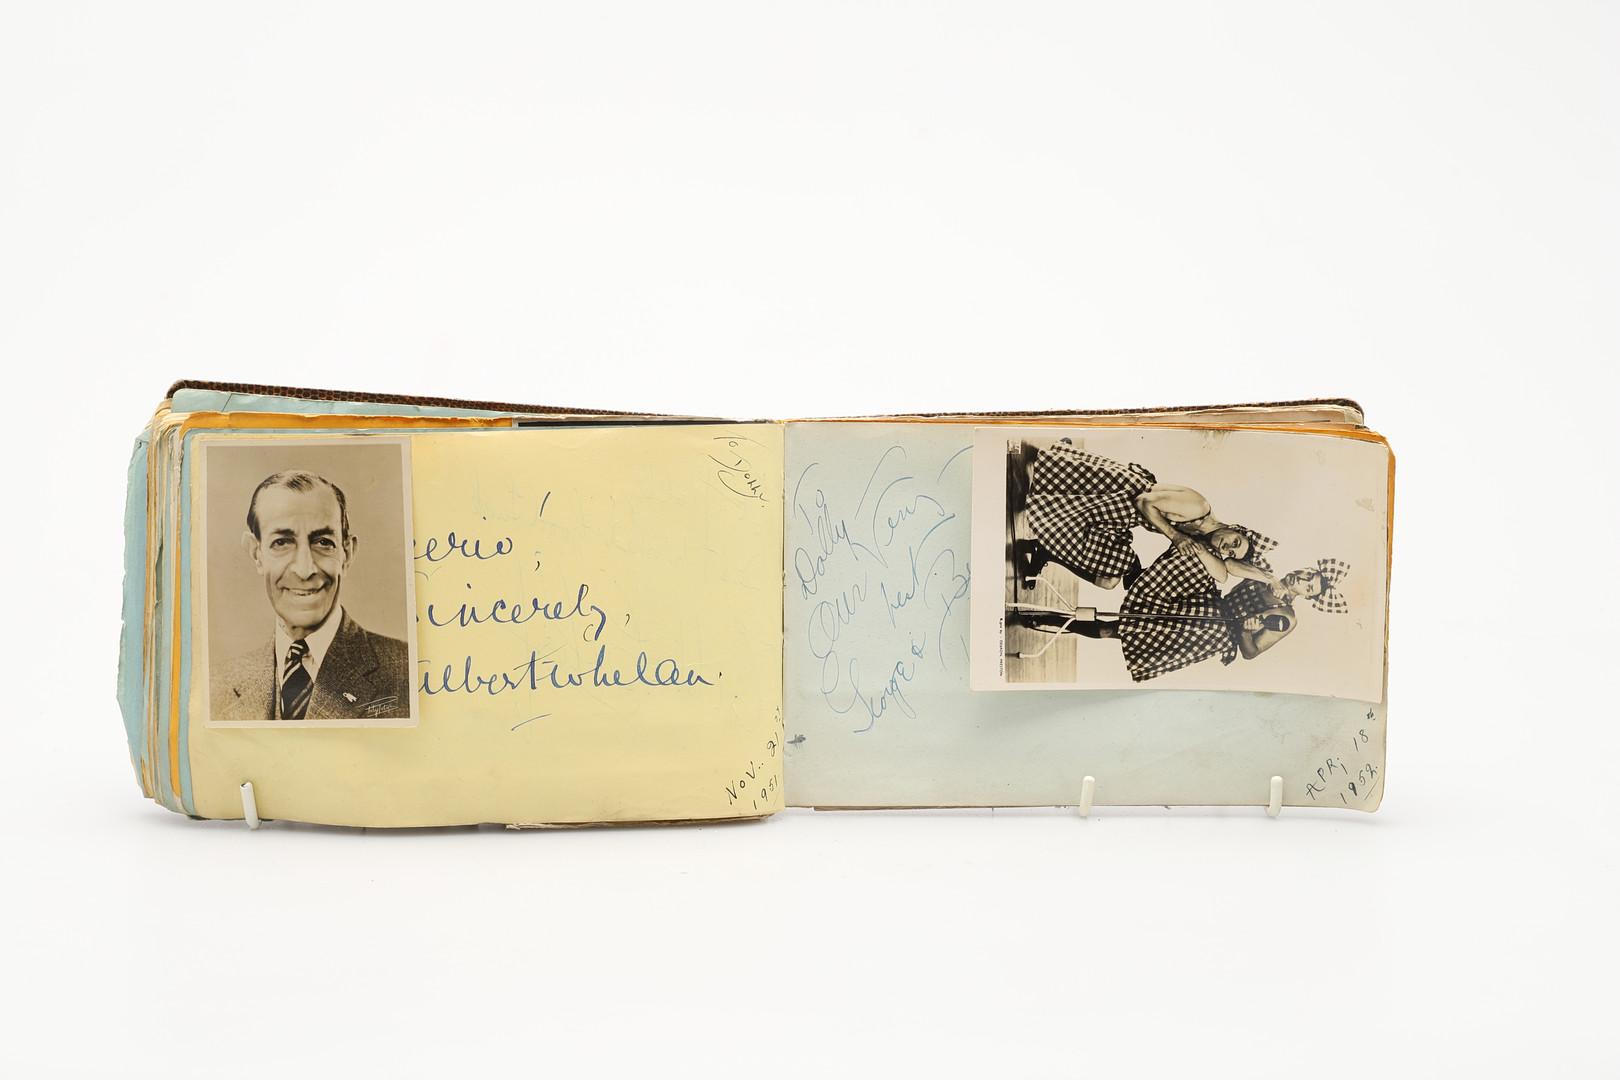 To Dolly.
erio!
Sincerely,
Albert Whelan.
NOV. 21st
1951
To
Dolly
Our Very
best
George &
APR; 18th
1952.